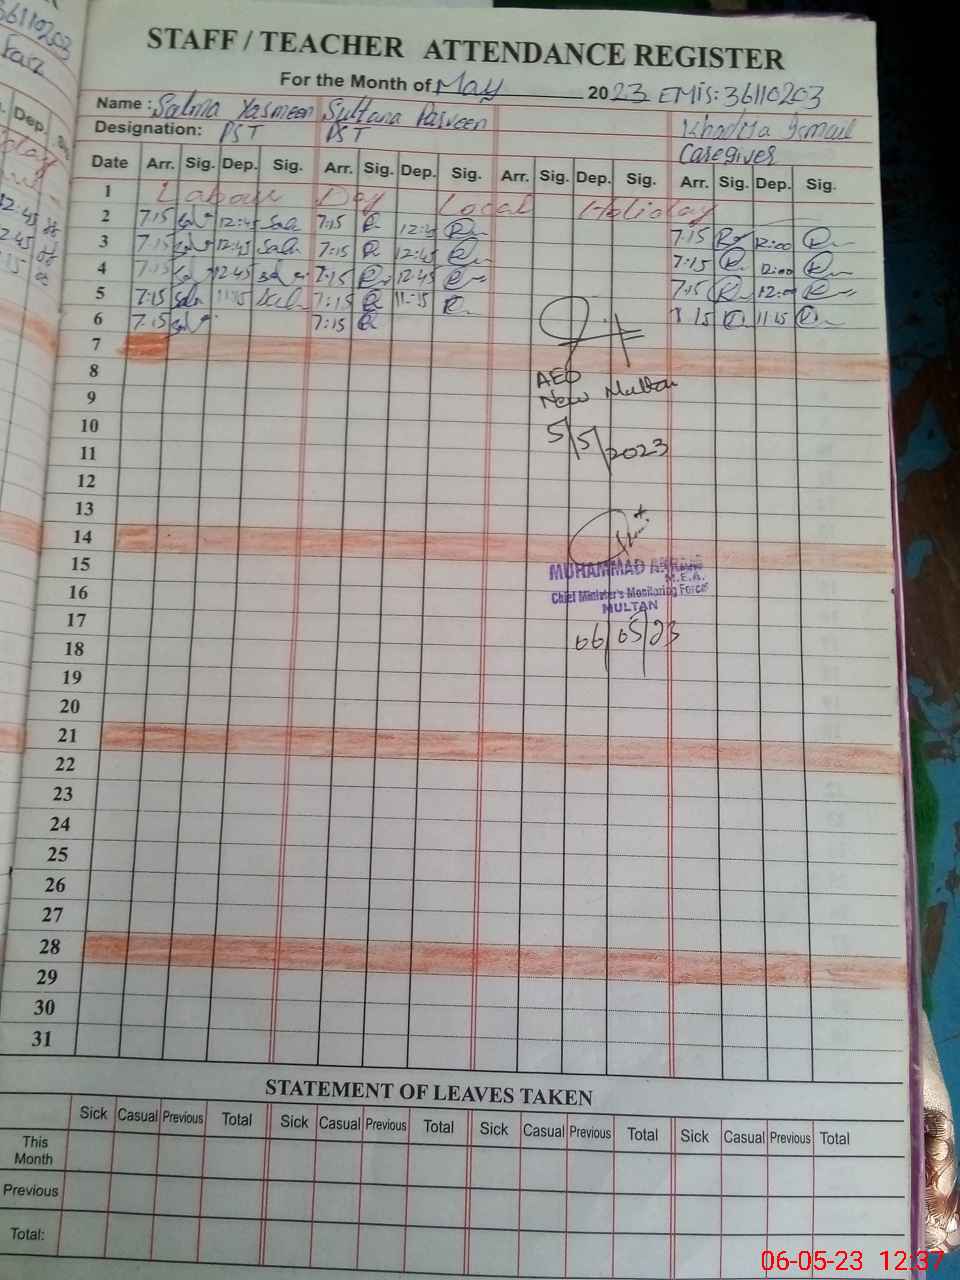 STAFF / TEACHER ATTENDANCE REGISTER
For the Month of May 2023 EMIS: 36110203
Name: Salma Yasmeen Sultana Parveen Khadija Ismail
Designation: PST PST Caregiver
Date Arr. Sig. Dep. Sig. Arr. Sig. Dep. Sig. Arr. Sig. Dep. Sig. Arr. Sig. Dep. Sig.
1 Labour Day Local Holiday
2 7:15 12:45 7:15 12:45 7:15 12:00
3 7:15 12:45 7:15 12:45 7:15 12:00
4 7:15 12:45 7:15 12:45 7:15 12:00
5 7:15 11:15 7:15 11:15 7:15 11:15
6 7:15 7:15
7
8 AEO
9 New Multan
10 5/5/2023
11
12
13
14
15 MUHAMMAD
M.E.A.
16 Chief Minister's Monitoring Force
MULTAN
17
18 06/05/23
19
20
21
22
23
24
25
26
27
28
29
30
31
STATEMENT OF LEAVES TAKEN
Sick Casual Previous Total Sick Casual Previous Total Sick Casual Previous Total Sick Casual Previous Total
This Month
Previous
Total:
06-05-23 12:37